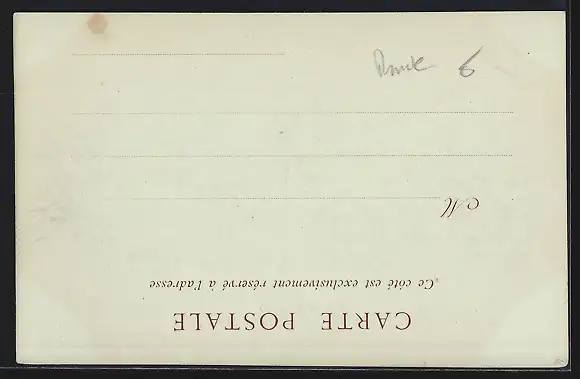 CARTE POSTALE
Ce côté est exclusivement réservé à l'adresse
M
6